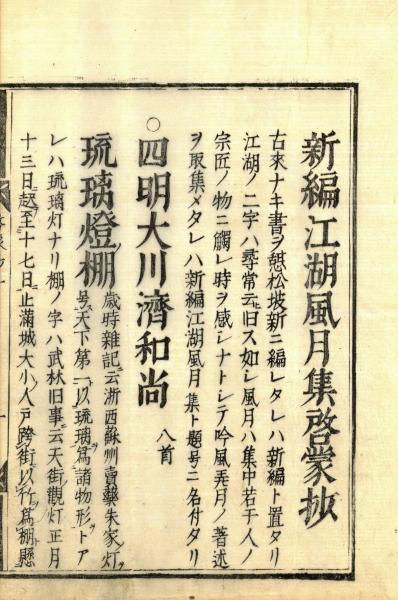 新編江湖風月集啓蒙抄
古來ナキ書ヲ憩松坡新ニ編レタレハ新編ト置タリ
江湖ノ二字ハ尋常云旧ス如シ風月ハ集中若干人ノ
宗匠ノ物ニ觸レ時ヲ感シナトシテ吟風弄月ノ著述
ヲ取集メタレハ新編江湖風月集ト題号ニ名付タリ
○四明大川濟和尚 八首
琉璃燈棚 歳時雜記云浙西蘇州賣藥朱家灯
号天下第一以琉璃爲諸物形トア
レハ琉璃灯ナリ棚ノ字ハ武林旧事云天街觀灯正月
十三日起至十七日止滿城大小人戸跨街以竹爲棚懸